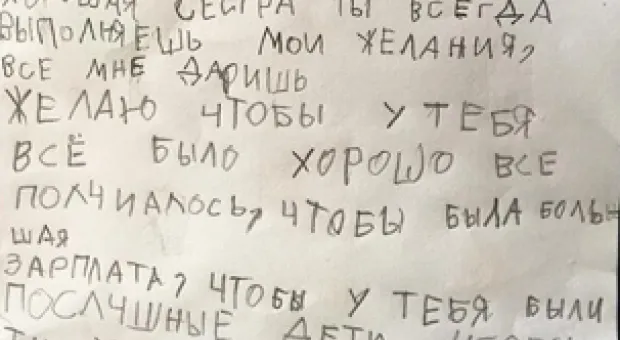 ХОРОШАЯ СЕСТРА ТЫ ВСЕГДА
ВЫПОЛНЯЕШЬ МОИ ЖЕЛАНИЯ,
ВСЕ МНЕ ДАРИШЬ
ЖЕЛАЮ ЧТОБЫ У ТЕБЯ
ВСЁ БЫЛО ХОРОШО ВСЕ
ПОЛЧИАЛОСЬ, ЧТОБЫ БЫЛА БОЛЬН
ШАЯ
ЗАРПЛАТА, ЧТОБЫ У ТЕБЯ БЫЛИ
ПОСЛЧШНЫЕ ДЕТИ